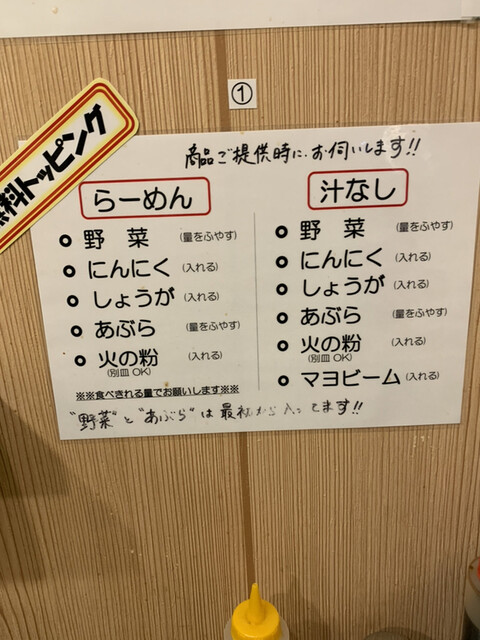 ①
料トッピング
商品ご提供時に、お伺いします!!
らーめん
野菜 (量をふやす)
にんにく (入れる)
しょうが (入れる)
あぶら (量をふやす)
火の粉 (入れる)
(別皿OK)
※※食べきれる量でお願いします※※
"野菜"と"あぶら"は最初から入ってます!!
汁なし
野菜 (量をふやす)
にんにく (入れる)
しょうが (入れる)
あぶら (量をふやす)
火の粉 (入れる)
(別皿OK)
マヨビーム (入れる)